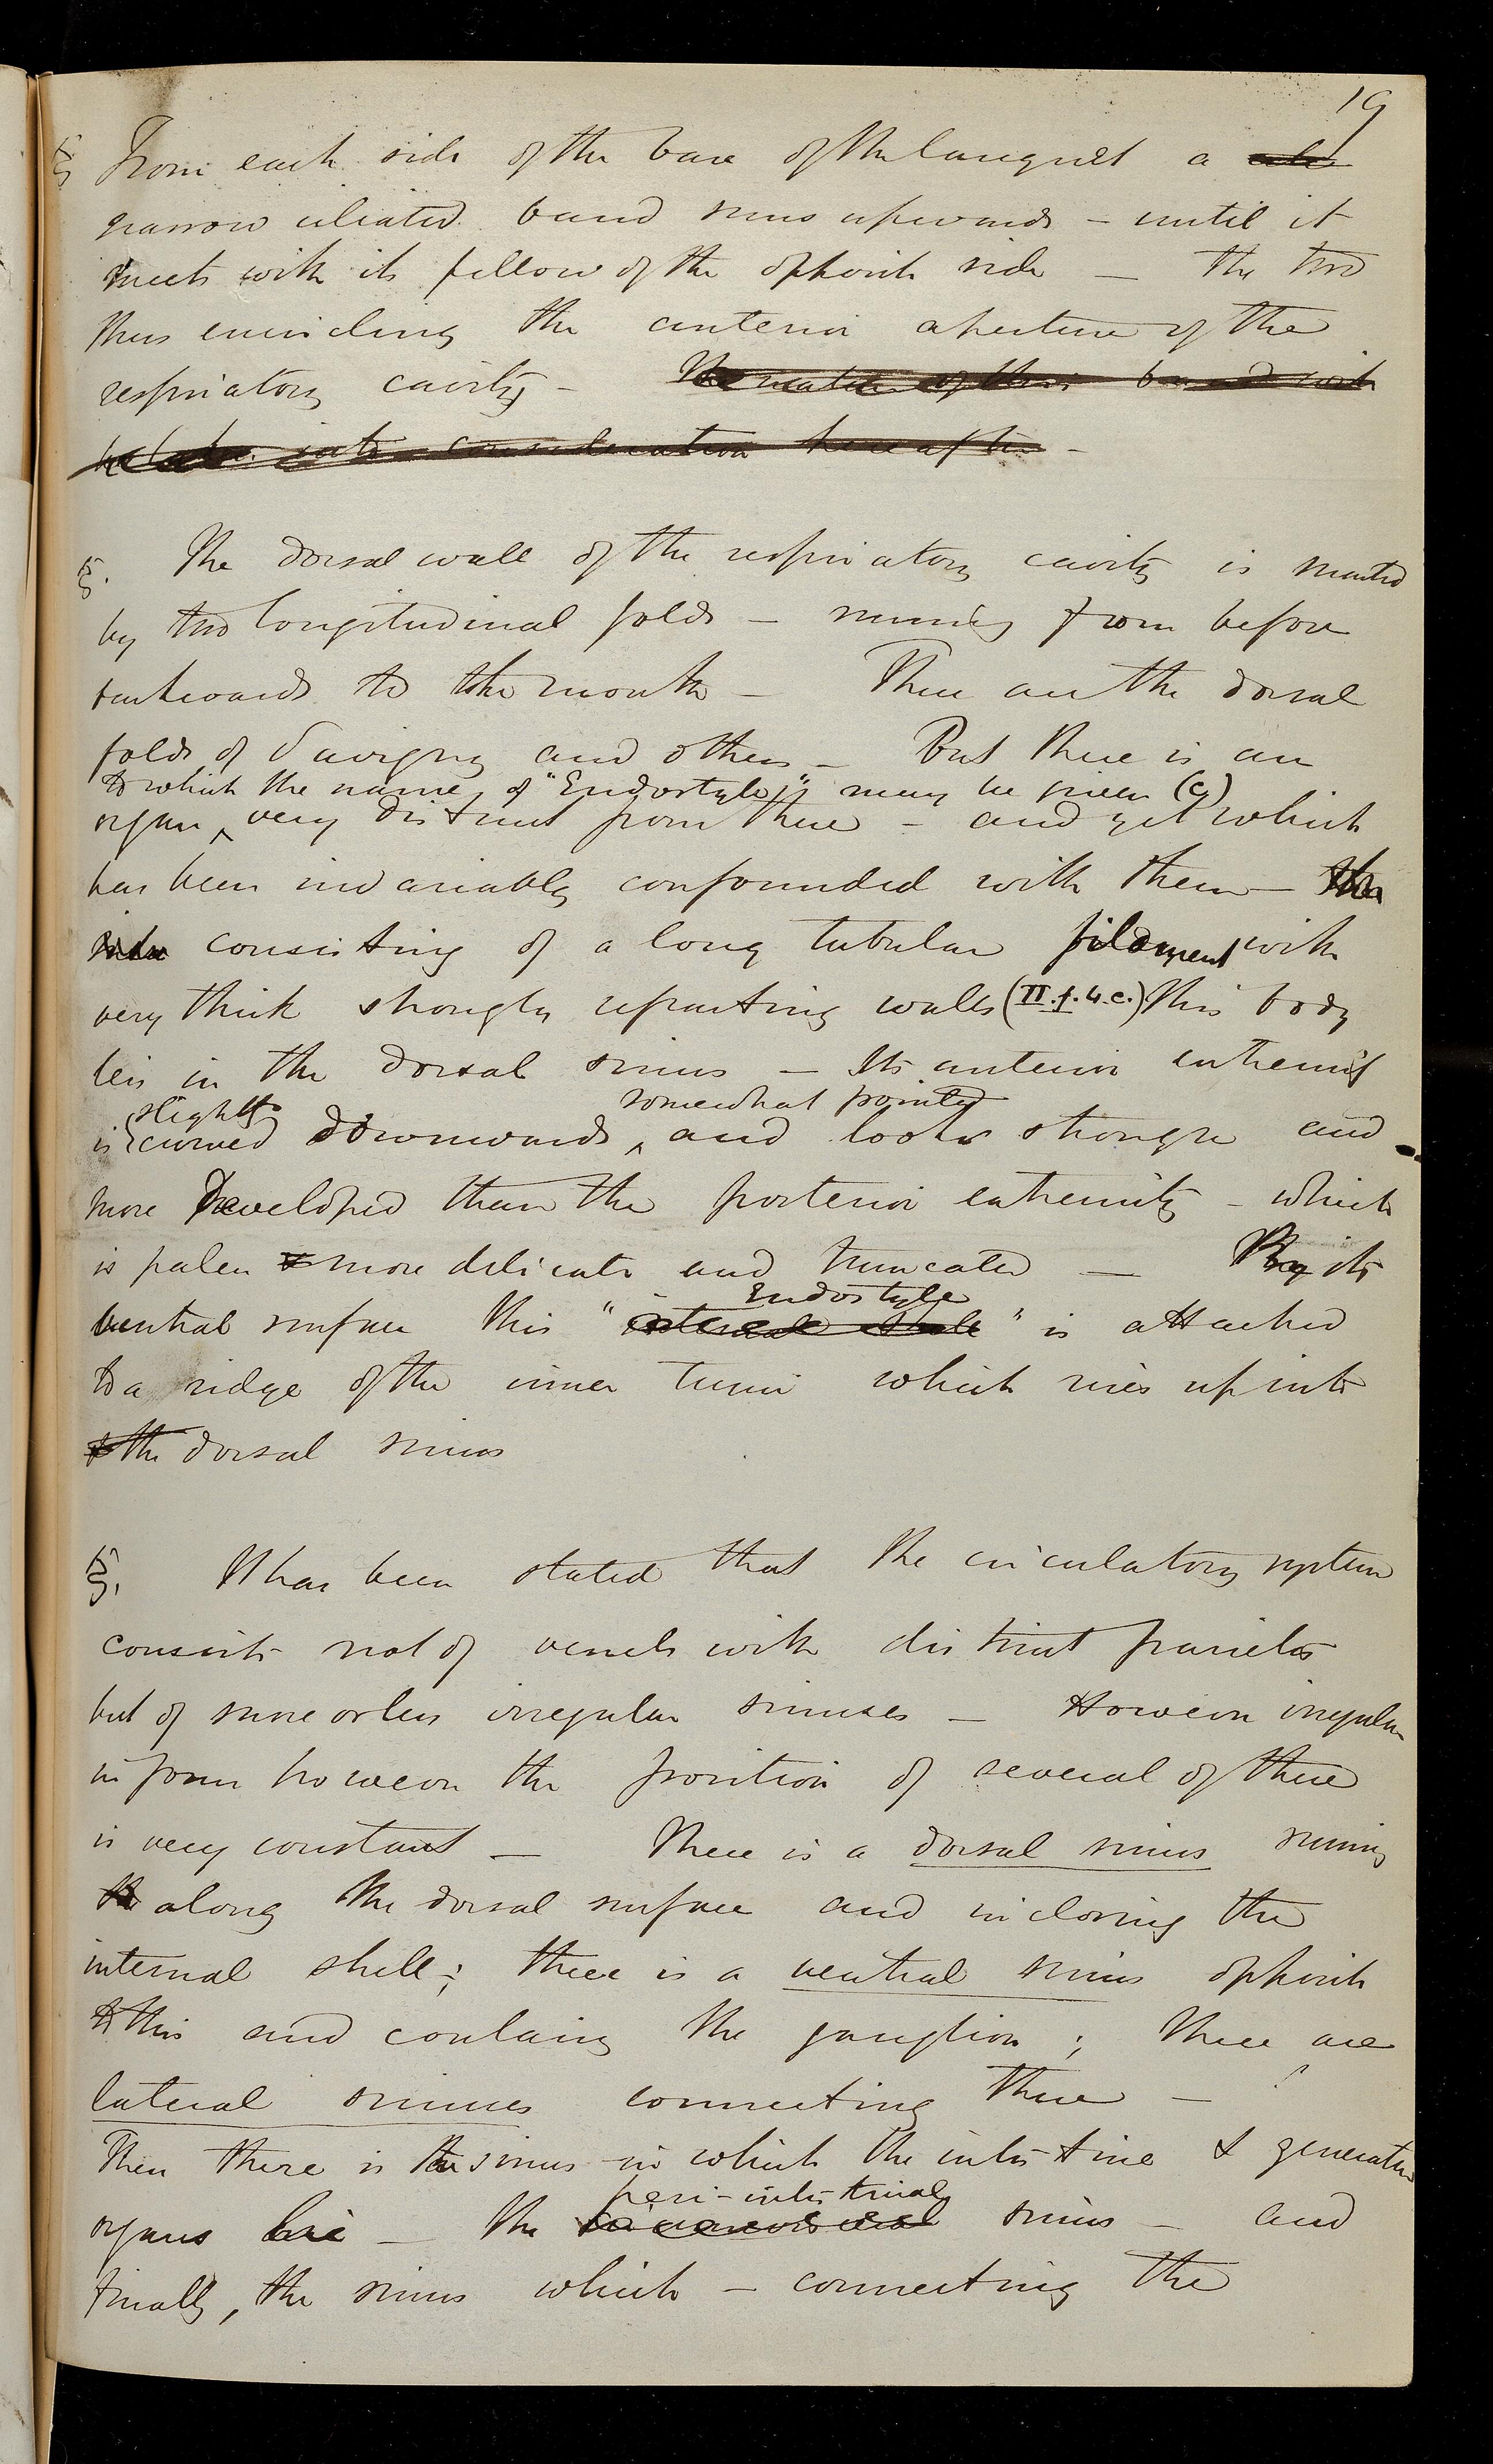 19
§ From each side of the base of the languet a
narrow ciliated band runs upwards - until it
meets with its fellow of the opposite side — the two
thus encircling the anterior aperture of the
respiratory cavity - The nature of this band will
be taken into consideration hereafter -
§. The dorsal wall of the respiratory cavity is marked
by two longitudinal folds — running from before
backwards to the mouth — These are the dorsal
folds of Savigny and others — But there is an
to which the name of "Endostyle" may be given (c)
organ ^ very distinct from these - and yet which
has been invariably confounded with them — the
consisting of a long tubular filament with
very thick strongly refracting walls (II.f.4.c.) This body
lies in the dorsal sinus — Its anterior extremity
slightly somewhat pointed
is curved downwards ^ and looks stronger and
more developed than the posterior extremity - which
is paler & more delicate and truncated — By its
Endostyle
ventral surface this "internal shell" is attached
to a ridge of the inner tunic which rises up into
the dorsal sinus
§. It has been stated that the circulatory system
consists not of vessels with distinct parietes
but of more or less irregular sinuses — However irregular
in form however the position of several of these
is very constant — There is a dorsal sinus running
along the dorsal surface and inclosing the
internal shell; there is a ventral sinus opposite
to this and containing the ganglion; there are
lateral sinuses connecting these —
Then there is the sinus in which the intestine & generative
peri-intestinal
organs lie — the sinus — and
finally, the sinus which — connecting the